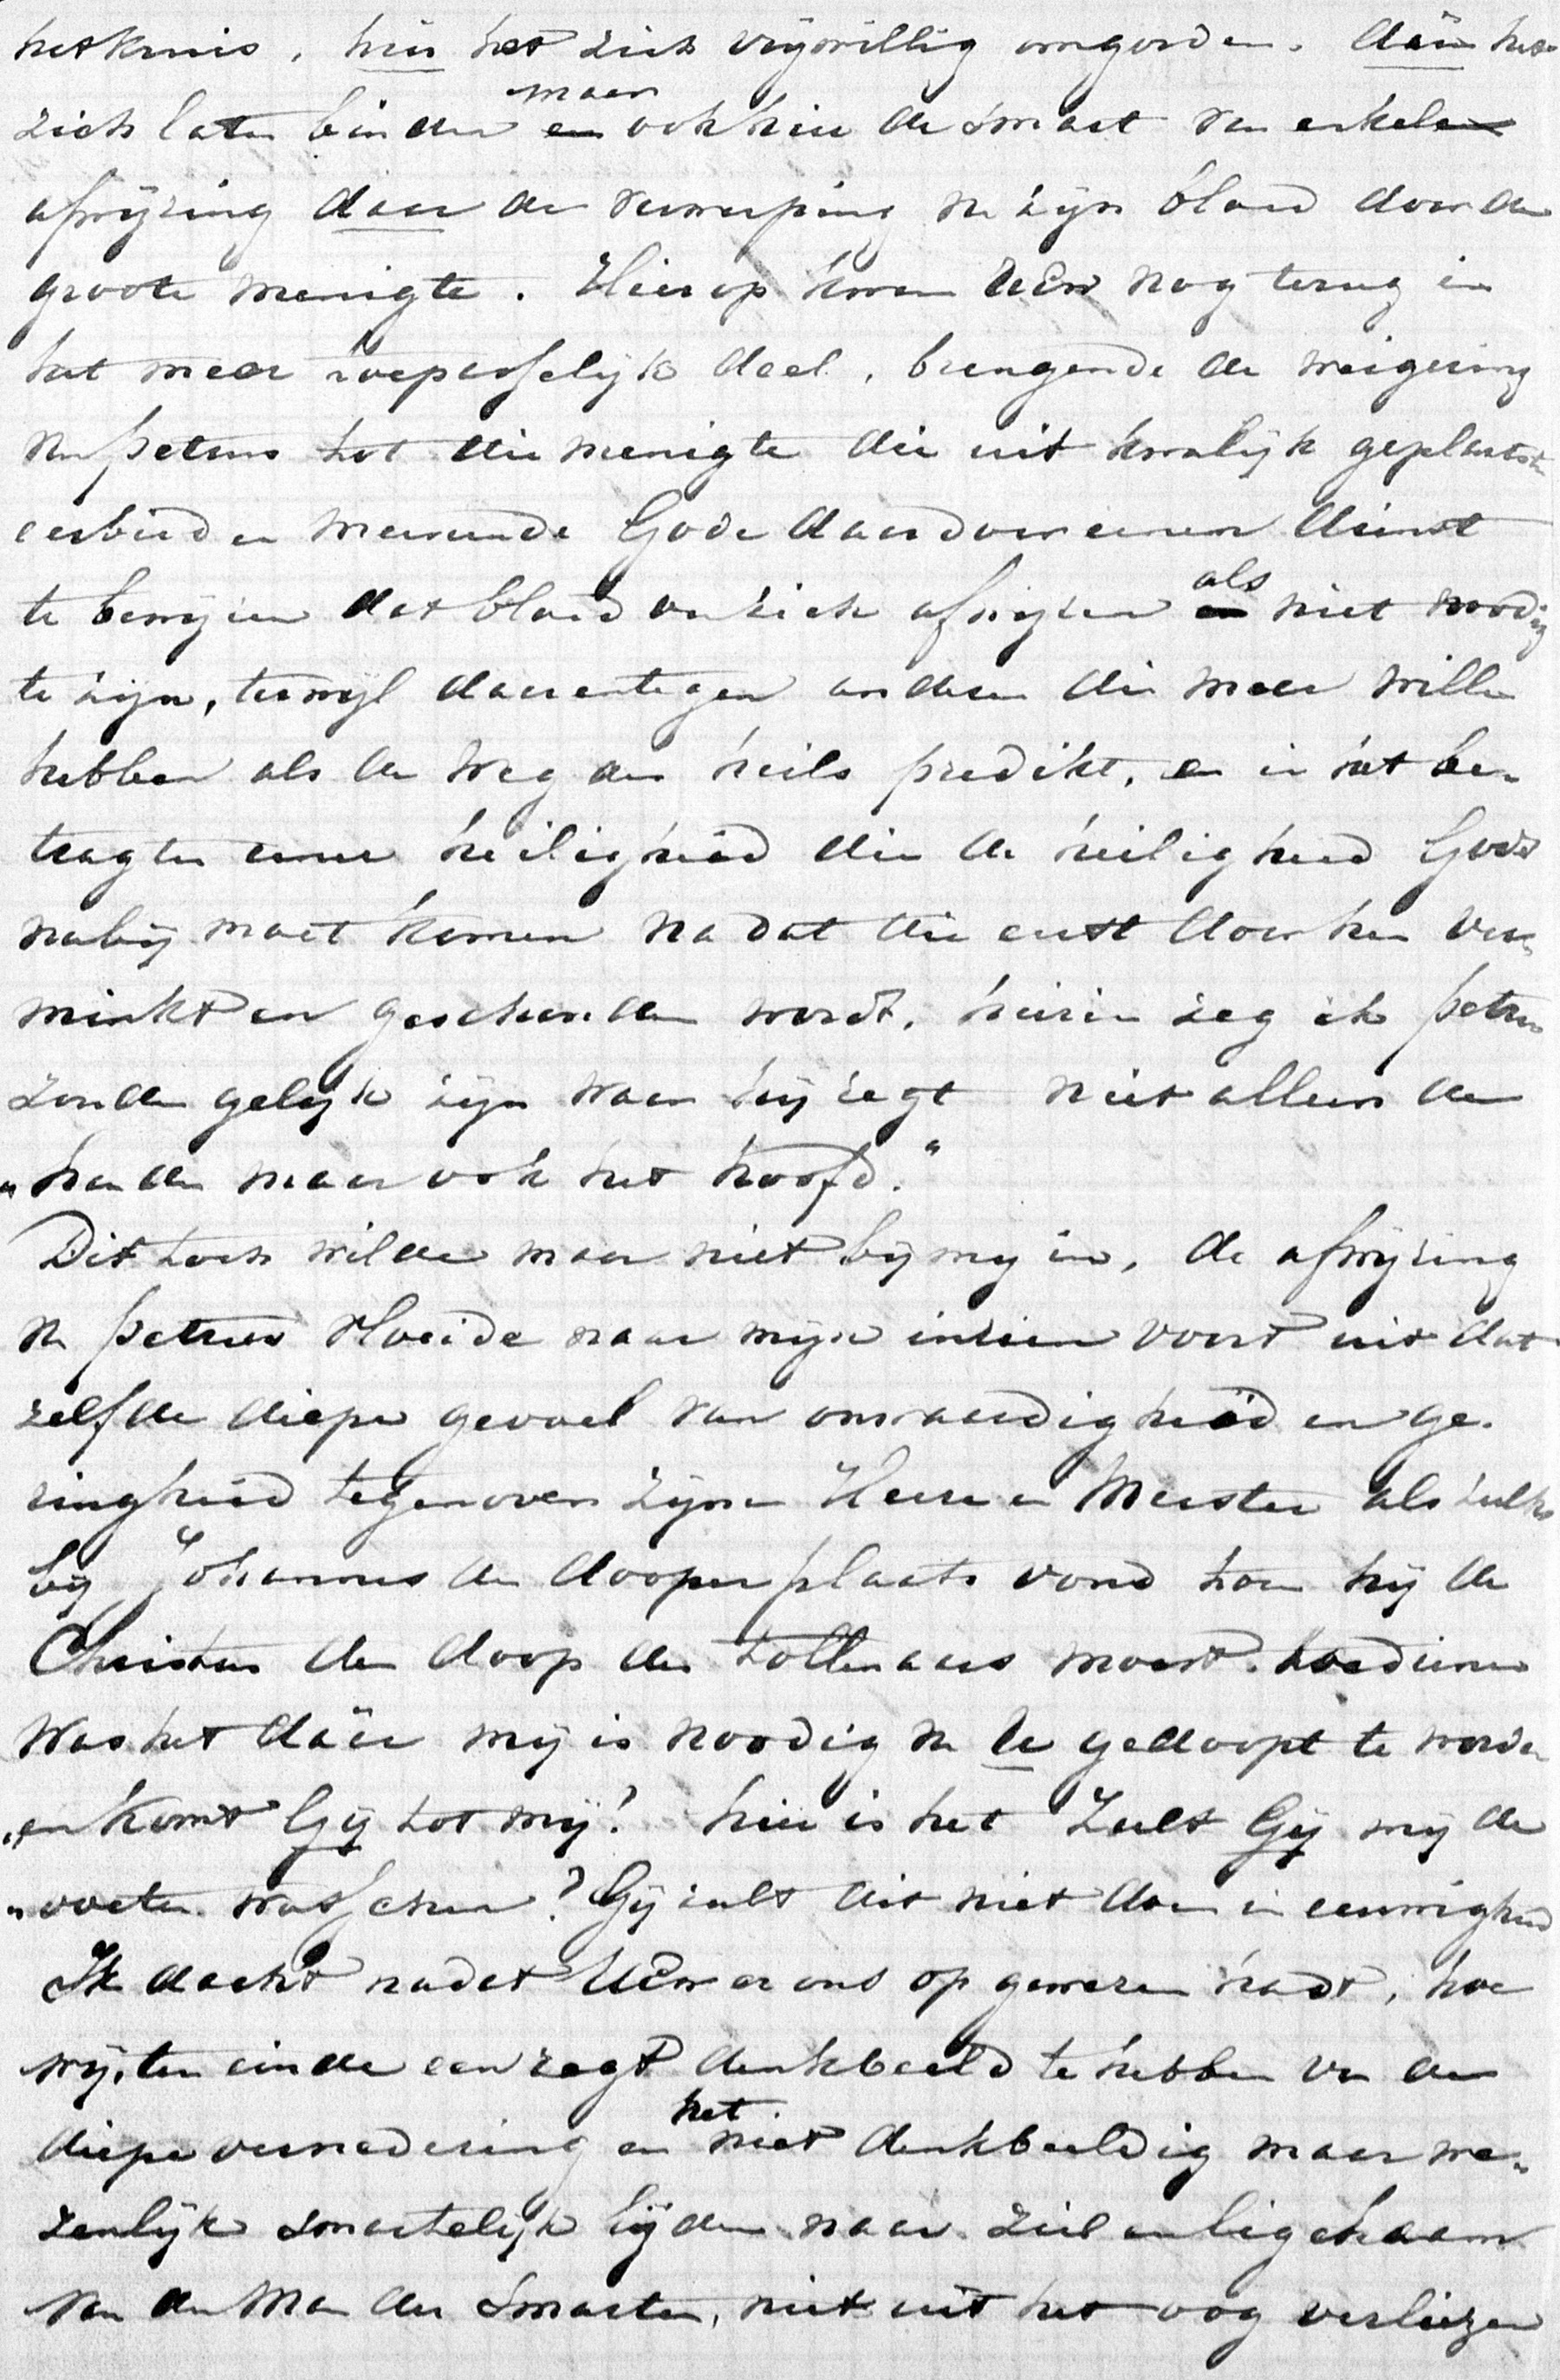 het kruis, hier het zich vrijwillig omgorden. dáár het
zich laten binden maar ook hier de smart van enkele
afwijzing daar de verwerping van zijn bloed door de
groote menigte. Hierop kwam UEw nog terug in
het meer toepasselijk deel, brengende de weigering
van petrus tot die menigte die uit kwalijk geplaatste
eerbied en meenende Gode daardoor eenen dienst
te bewijzen dat bloed van zich afwijzen als niet noodig
te zijn, terwijl daarentegen anderen die meer willen
hebben als de weg des heils predikt, en in het be-
tragten eener heiligheid die de heiligheid Gods
nabij moet komen na dat die eerst door hen ver-
minkt en geschonden wordt, hierin zeg ik petrus
zonden gelijk zijn waar hij zegt niet alleen de
"handen maar ook het hoofd."
Dit toch wilde maar niet bij mij in, de afwijzing
van petrus vloeide naar mijn inzien voort uit dat-
zelfde diepe gevoel van onwaardigheid en ge-
ringheid tegenover zijnen Heere en Meester als zulks
bij Johannes de dooper plaats vond toen hij de
Christus den doop der tollenaars moest toedienen
Was het dáár mij is noodig van U gedoopt te worden
"en komt Gij tot mij! hier is het Zult Gij mij de
"voeten wasschen? Gij zult dit niet doen in eeuwigheid
Ik dacht nadat UEw er ons op gewezen hadt, hoe
wij, ten einde een regt denkbeeld te hebben van de
diepe vernedering en het niet denkbeeldig maar we-
zenlijk smartelijk lijden naar ziel en ligchaam
van den Man der Smarten, niet uit het oog verliezen